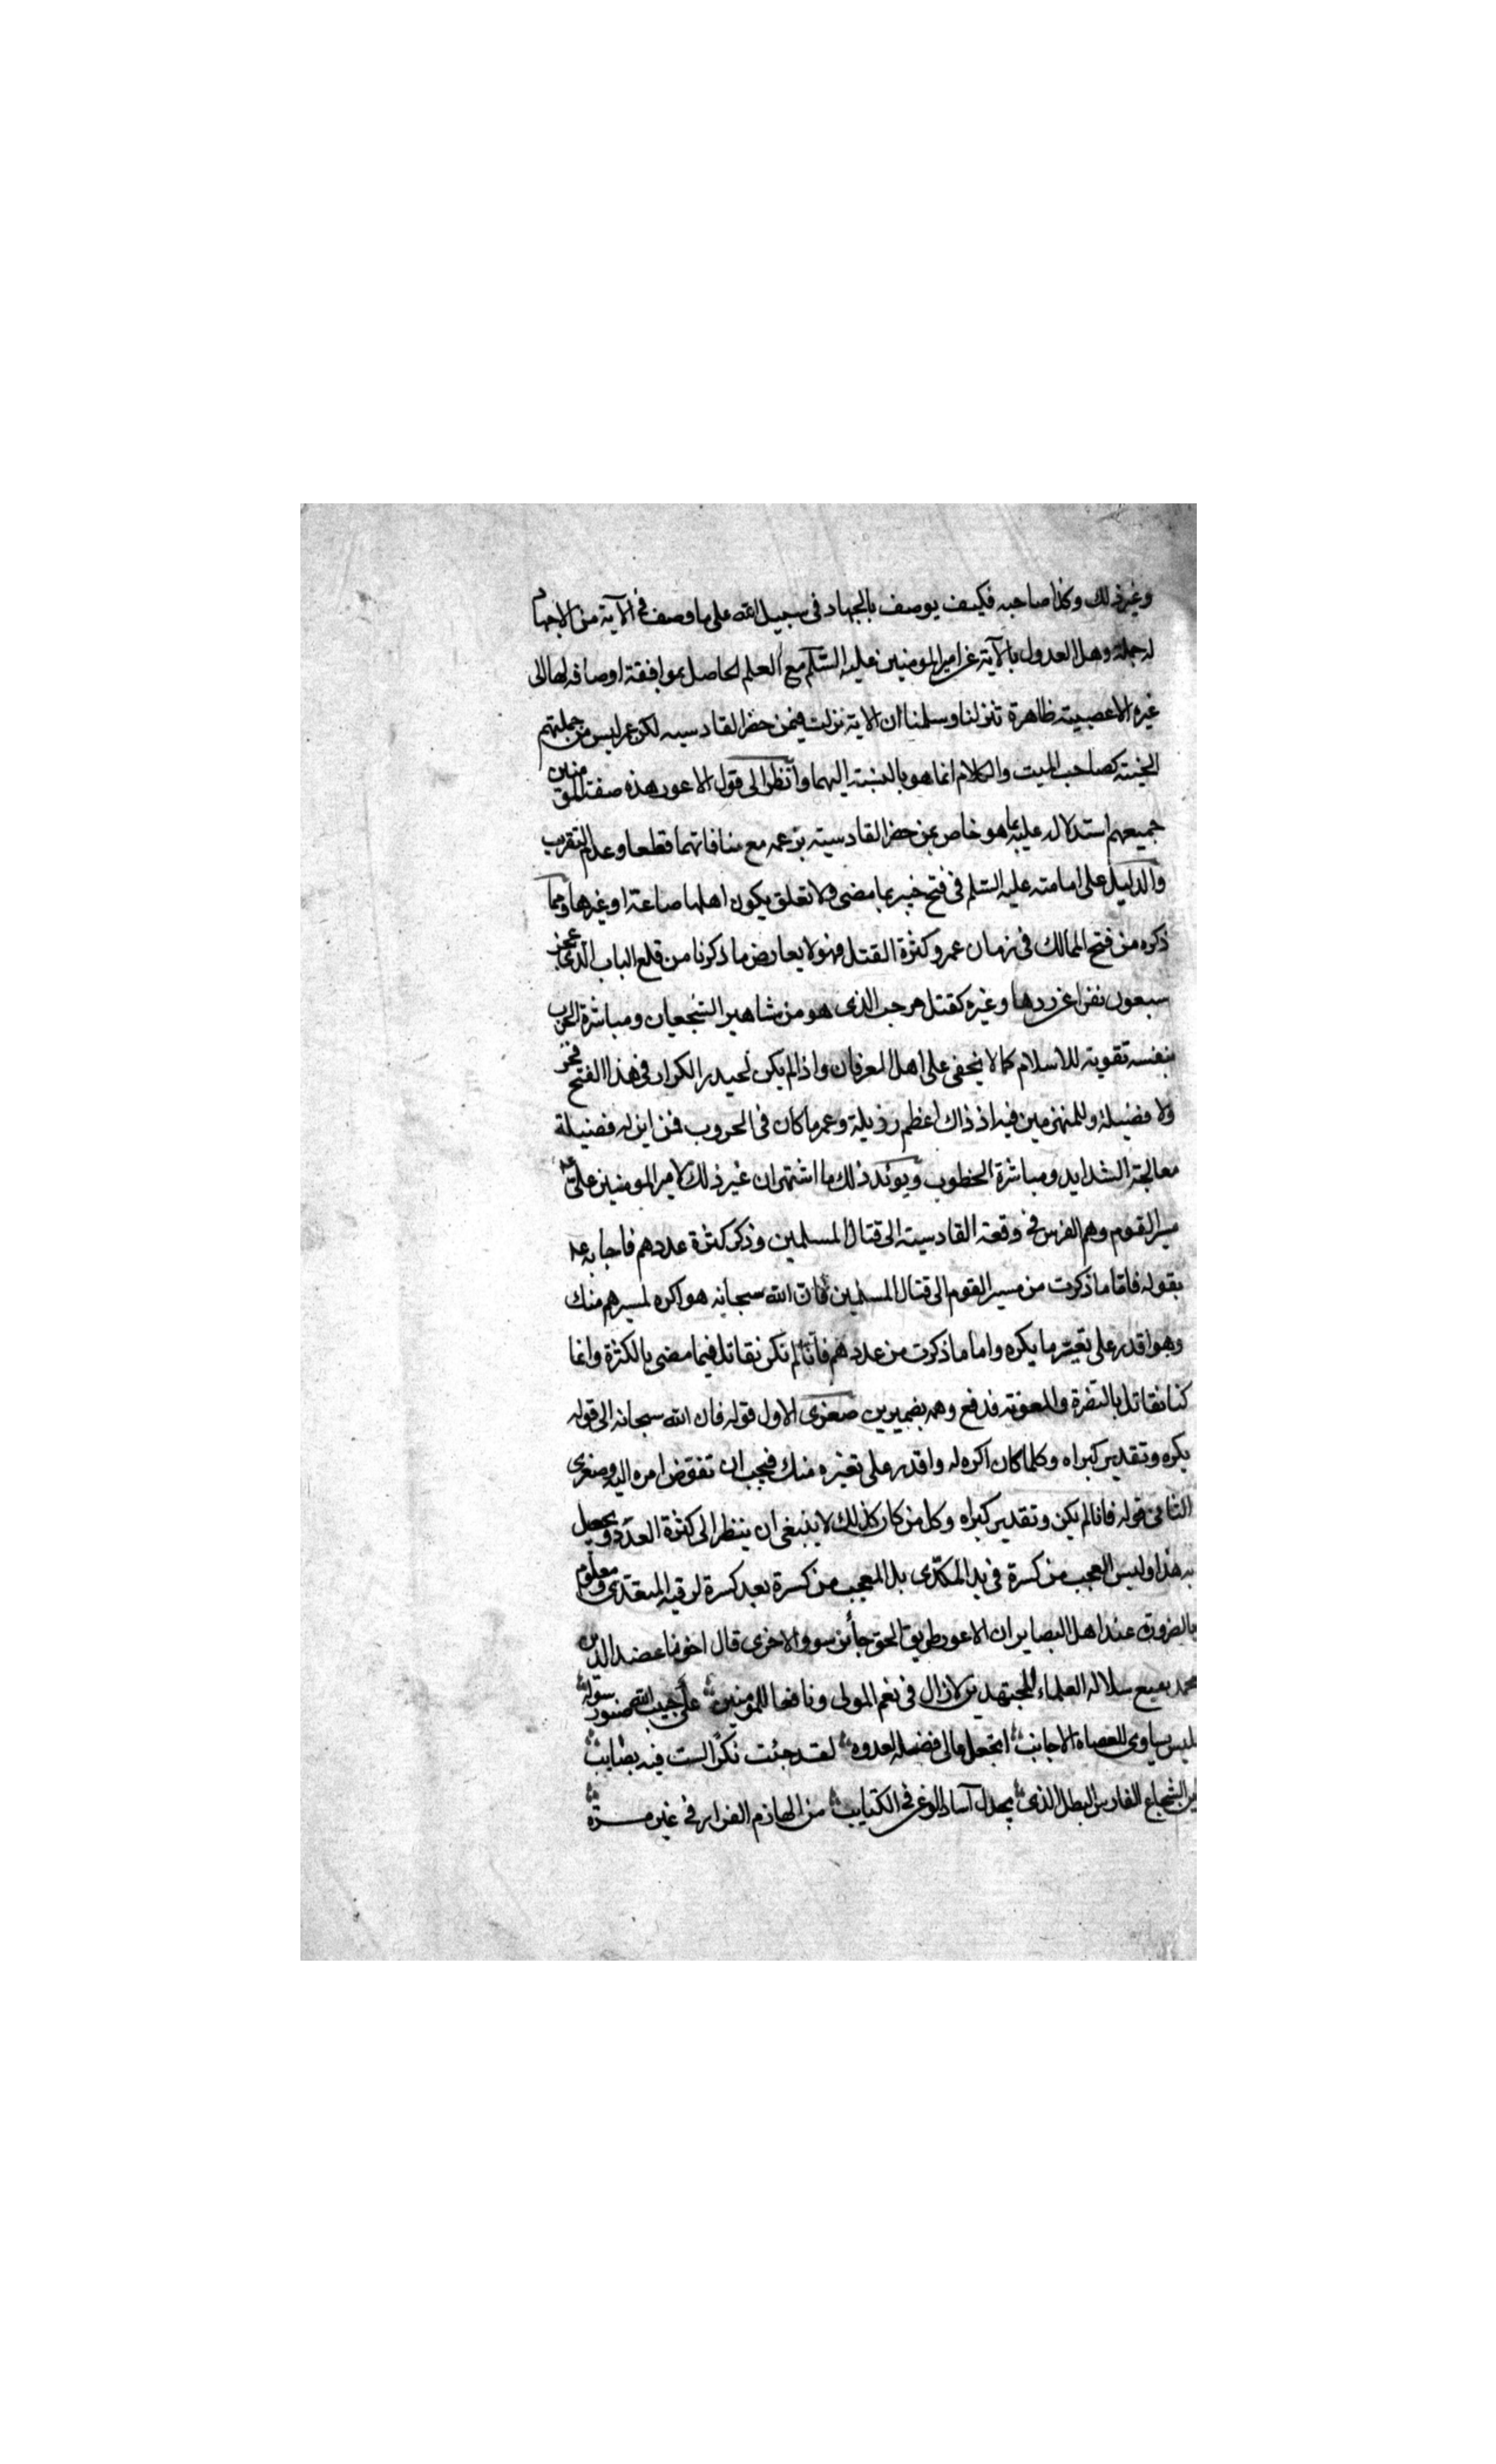 وغير ذلك وكذا صاحبه فكيف يوصف بالجهاد في سبيل الله على ما وصف في الآية من الاجهاد
له جملة وهل العدول بالآية عن امير المومنين عليه السلم مع العلم الحاصل بموافقة اوصافه لها الى
غيره الا عصبية ظاهرة تنزلنا وسلمنا ان الاية نزلت فيمن حضر القادسيه لكن عمر ليس من جملتهم
كصاحب الميت والكلام انما هو بالنسبة اليهما وانظر الى قول الاعور هذه صفة المومنين
جميعهم استدلاله عليه بما هو خاص بمن حضر القادسيته بزعمه مع منافاتهما قطعا وعدم التقريب
والدليل على امامته عليه السلم في فتح خيبر بما مضى ولا تعلق بكون اهلها صاعة او غيرها وما
ذكره من فتح الممالك في زمان عمر وكثرة القتل فهو لا يعارض ما ذكرنا من قلع الباب الذي عجز
سبعون نفرا عن ردها وغيره كقتل مرحب الذى هو من مشاهير الشجعان ومباشرة الحرب
بنفسه تقوية للاسلام كما لا يخفى على اهل العرفان واذا لم يكن لحيدر الكرار في هذا الفتح فخر
ولا فضيلة وللمنهزمين فيه اذ ذاك اعظم رذيلة وعمر ما كان في الحروب فمن اين له فضيلة
معالجة الشدايد ومباشرة الخطوب ويويد ذلك ما اشتهر ان غير ذلك لامير المومنين على ع
مسير القوم وهم الفرس في وقعة القادسية الى قتال المسلمين وذكر كثرة عددهم فاجابه ع
بقوله فاما ما ذكرت من مسير القوم الى قتال المسلمين فان الله سبحانه هو اكره لمسيرهم منك
وهو اقدر على تغيير ما يكره واما ما ذكرت من عددهم فانا لم نكن نقاتل فيما مضى بالكثرة وانما
كنا نقاتل بالنصرة والمعونة فدفع وهمه بضميرين صغرى الاول قوله فان الله سبحانه الى قوله
يكره وتقدير كبراه وكلما كان اكره له واقدر على تغيره منك فيجب ان تفوض امره اليه وصغرى
الثاني قوله فانا لم نكن وتقدير كبراه وكل من كان كذلك لا ينبغي ان ينظر الى كثرة العدد ويجعل
به هذا وليس العجب من كسرة في يد المكدى بل العجب من كسرة بعد كسرة ومعلوم
بالضرورة عند اهل البصاير ان الاعور طريق الحق جائز سو والاخرى قال اخونا عضد الدين
محمد سلالة العلماء المجتهدين لا زال في نعم المولى ونافعا للمومنين على حبيب الله
ليس يساوى للعصاة الاجانب اتجعل مالي فضله لعدوه لقد جئت نكرا لست فيه بصايب
اين الشجاع الفارس البطل الذي يجدل آساد الوغى في الكتايب من الهاذم الفرار في غير مرة